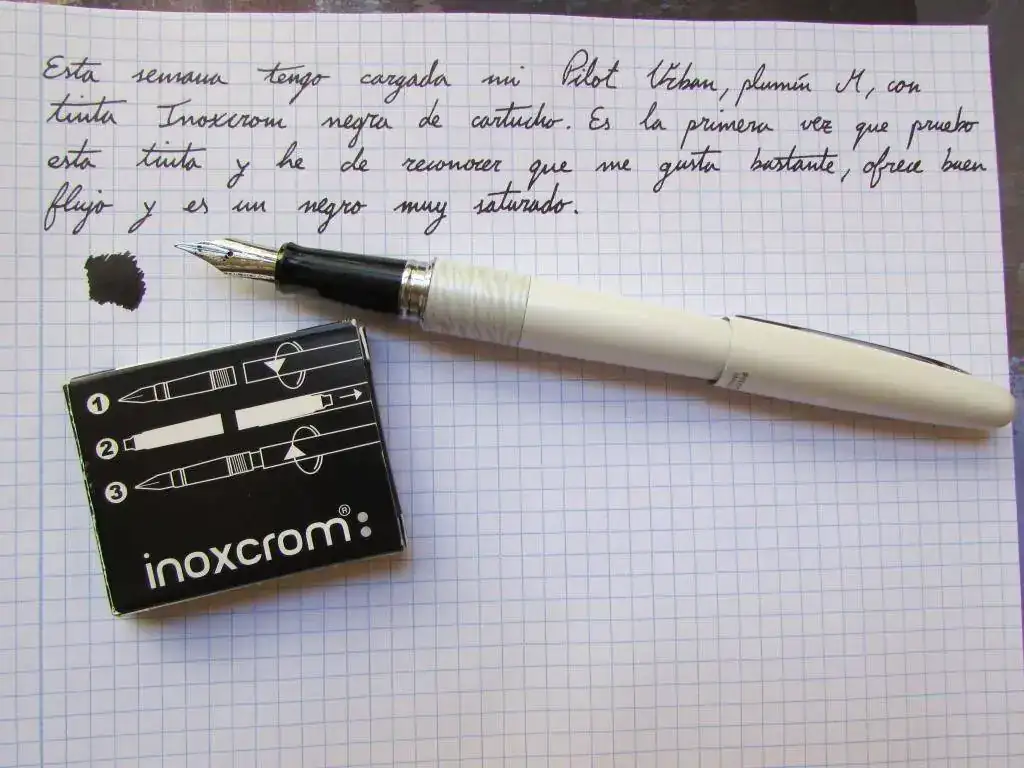 Esta semana tengo cargada mi Pilot Urban, plumín M, con
tinta Inoxcrom negra de cartucho. Es la primera vez que pruebo
esta tinta y he de reconocer que me gusta bastante, ofrece buen
flujo y es un negro muy saturado.
1
2
3
inoxcrom®